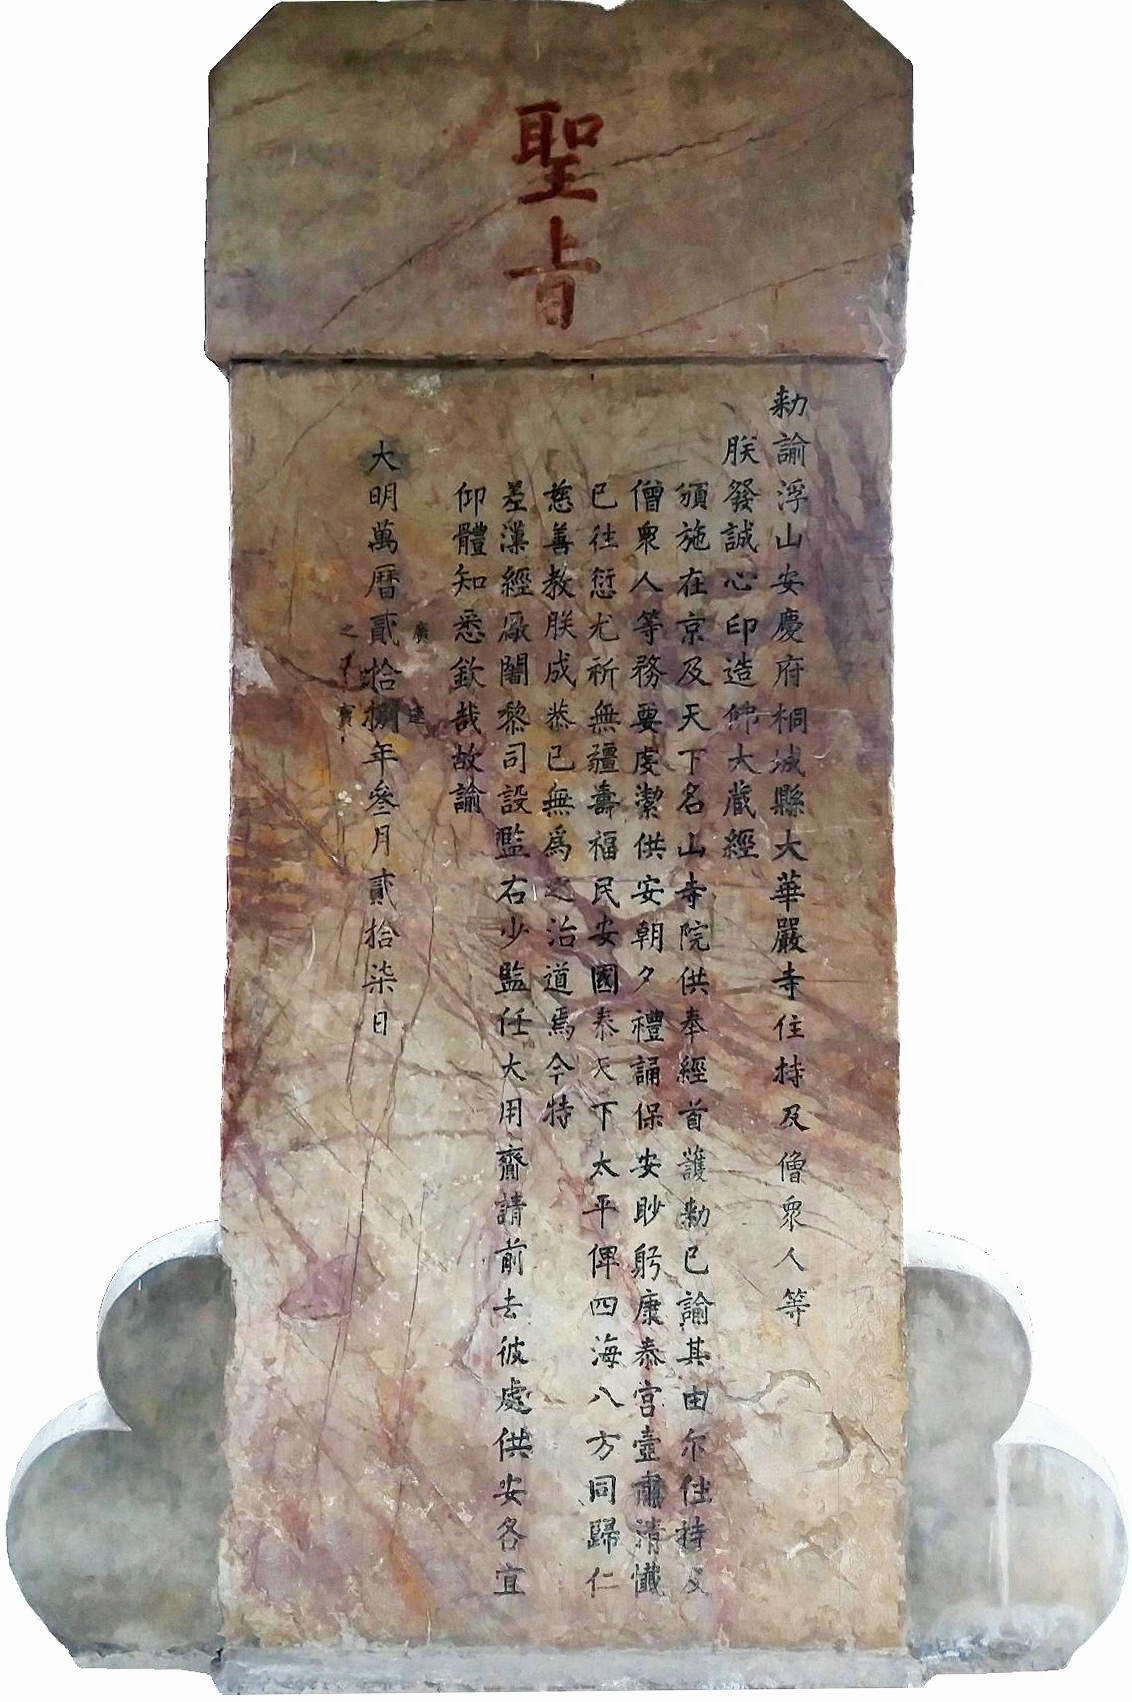 聖旨
勑諭浮山安慶府桐城縣大華嚴寺住持及僧衆人等
朕發誠心印造佛大藏經
頒施在京及天下名山寺院供奉經首護勑已諭其由尔住持及
僧衆人等務要虔潔供安朝夕禮誦保安眇躬康泰宫壼肅清懺
已往愆尤祈無疆壽福民安國泰天下太平俾四海八方同歸仁
慈善教朕成恭己無爲之治道焉今特
差漢經廠闍黎司設監右少監任大用齎請前去彼處供安各宜
仰體知悉欽哉故諭
廣運
大明萬曆貳拾捌年叁月貳拾柒日
之寶